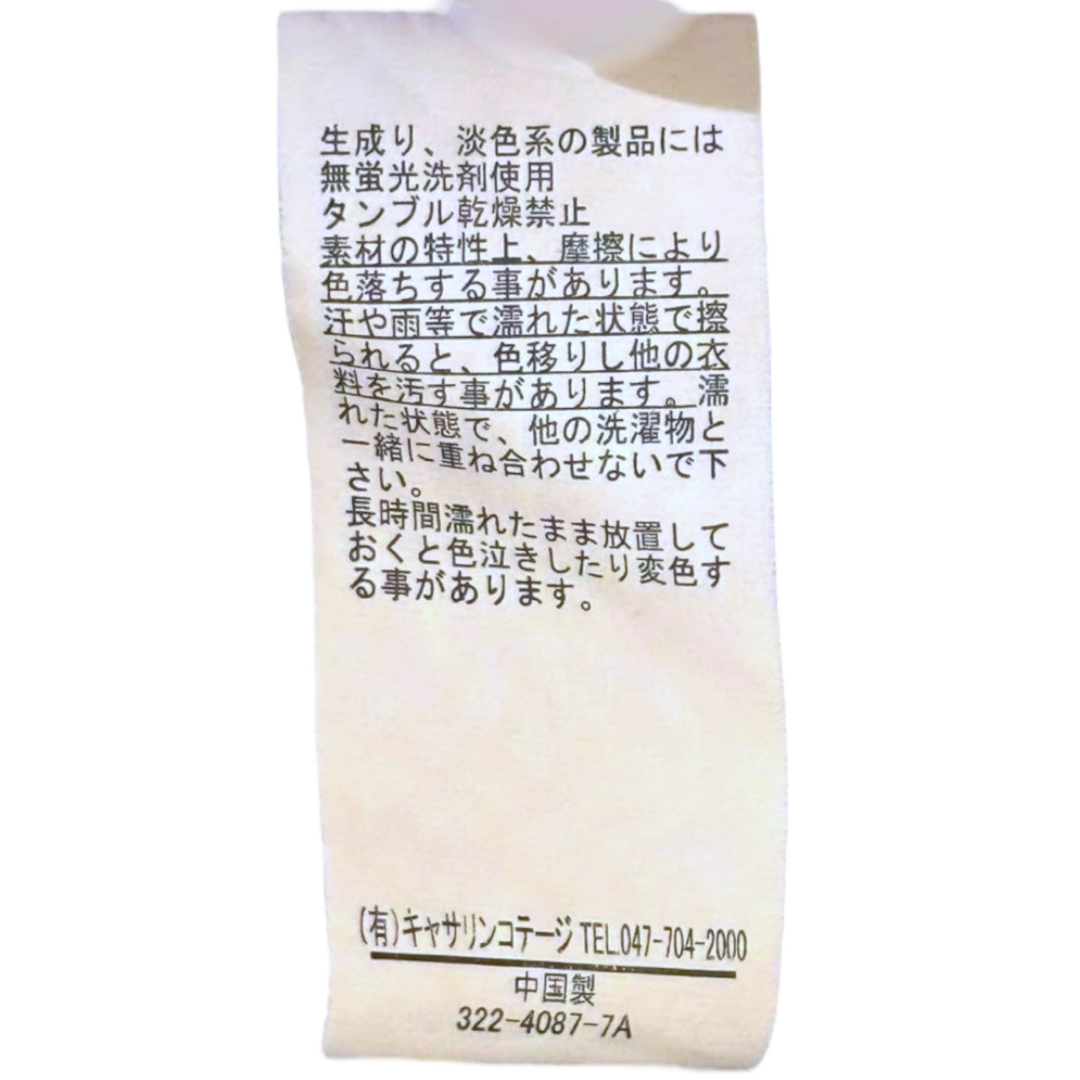 生成り、淡色系の製品には
無蛍光洗剤使用
タンブル乾燥禁止
素材の特性上、摩擦により
色落ちする事があります。
汗や雨等で濡れた状態で擦
られると、色移りし他の衣
料を汚す事があります。濡
れた状態で、他の洗濯物と
一緒に重ね合わせないで下
さい。
長時間濡れたまま放置して
おくと色泣きしたり変色す
る事があります。
(有)キャサリンコテージ TEL.047-704-2000
中国製
322-4087-7A